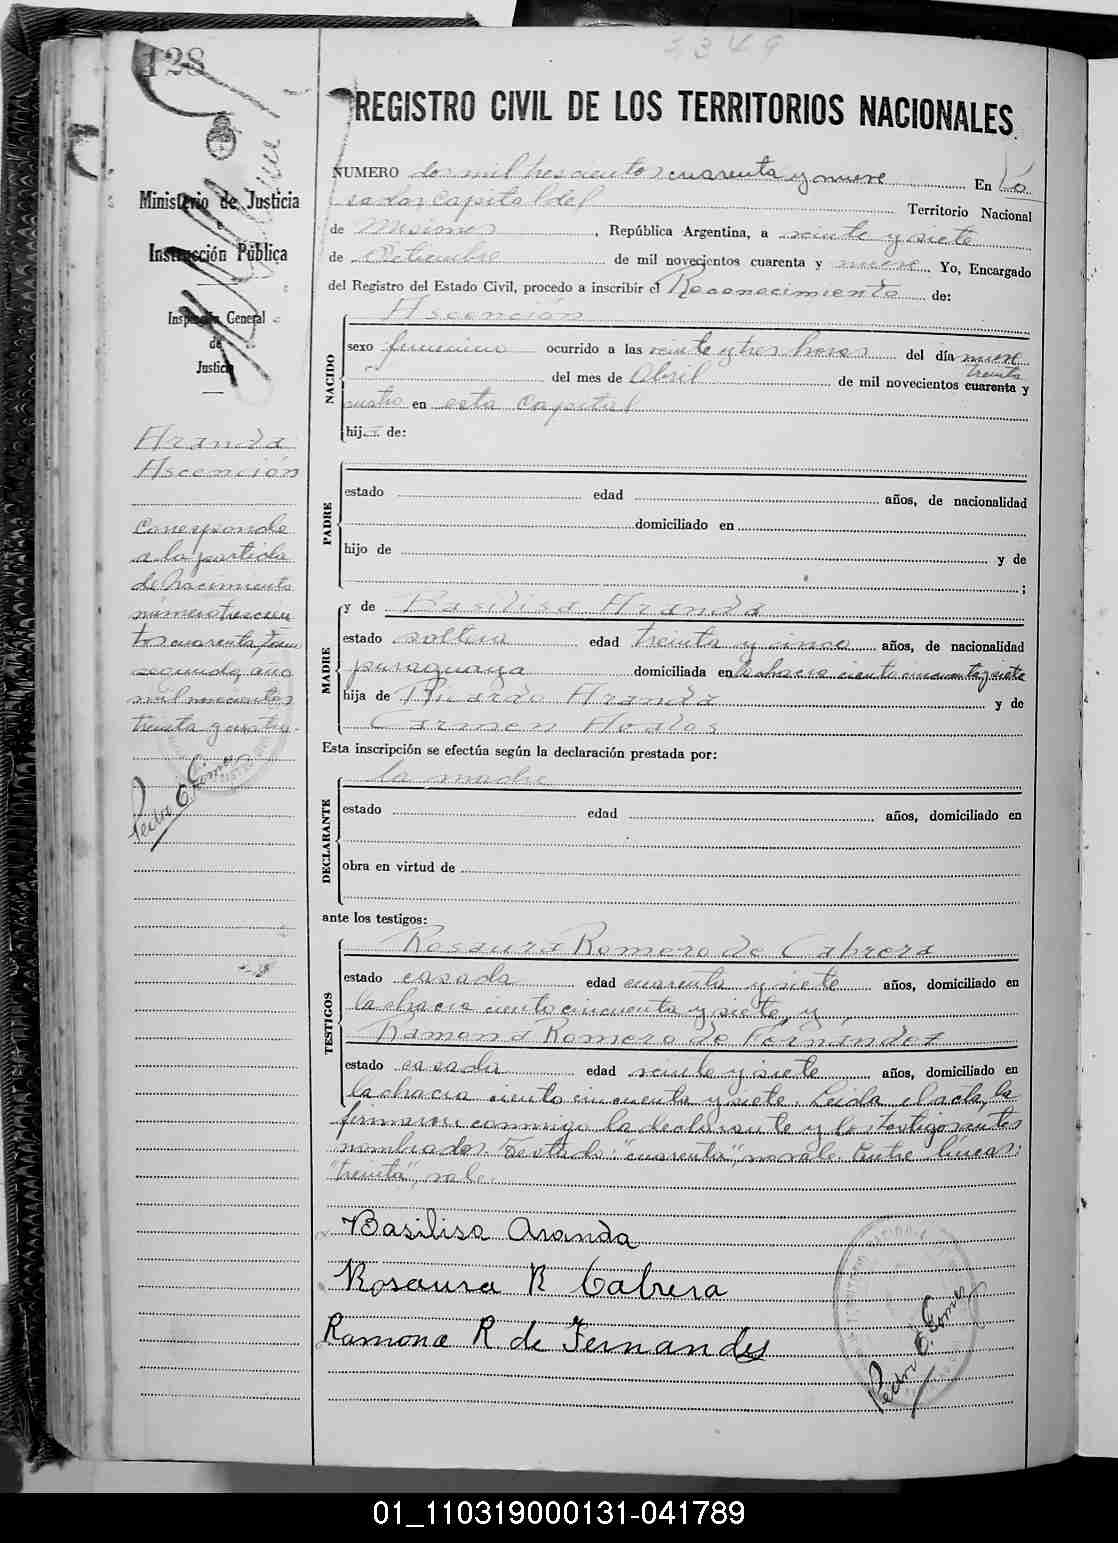 128
2349
REGISTRO CIVIL DE LOS TERRITORIOS NACIONALES
Ministerio de Justicia
e
Instrucción Pública
Inspección General
de
Justicia
NUMERO dos mil trescientos cuarenta y nueve En
Posadas Capital del Territorio Nacional
de Misiones, República Argentina, a veinte y siete
de Setiembre de mil novecientos cuarenta y nueve Yo, Encargado
del Registro del Estado Civil, procedo a inscribir el Reconocimiento de:
NACIDO
Ascención
sexo femenino ocurrido a las veinte y tres horas del día nueve
del mes de Abril de mil novecientos cuarenta y
treinta
cuatro en esta Capital
hija de:
Aranda
Ascención
Corresponde
a la partida
de Nacimiento
número trescien
tos cuarenta
segunda, año
mil novecientos
treinta y cuatro.
Pedro E. Gomez
PADRE
estado edad años, de nacionalidad
domiciliado en
hijo de y de
;
MADRE
y de Basilisa Aranda
estado soltera edad treinta y cinco años, de nacionalidad
paraguaya domiciliada en la chacra ciento cincuenta y siete
hija de Ricardo Aranda y de
Carmen
Esta inscripción se efectúa según la declaración prestada por:
DECLARANTE
la madre
estado edad años, domiciliado en
obra en virtud de
ante los testigos:
TESTIGOS
Rosaura Romero de Cabrera
estado casada edad cuarenta y siete años, domiciliado en
la chacra ciento cincuenta y siete, y
Ramona Romero de Fernández
estado casada edad veinte y siete años, domiciliado en
la chacra ciento cincuenta y siete. Leida el acta, la
firmaron conmigo la declarante y los testigos antes
nombrados. Testado: "cuarenta", no vale. Entre líneas:
"treinta", vale.
Basilisa Aranda
Rosaura R Cabrera
Ramona R. de Fernandes
Pedro E. Gomez
01_110319000131-041789